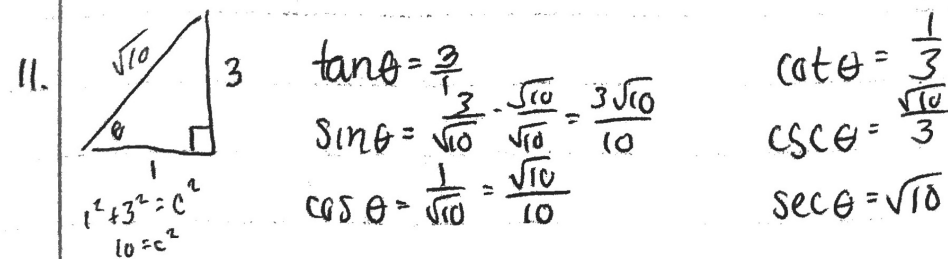 11.
√10
3
θ
1
1² + 3² = c²
10 = c²
tanθ = 3/1
sinθ = 3/√10 · √10/√10 = 3√10/10
cos θ = 1/√10 = √10/10
cot θ = 1/3
cscθ = √10/3
secθ = √10